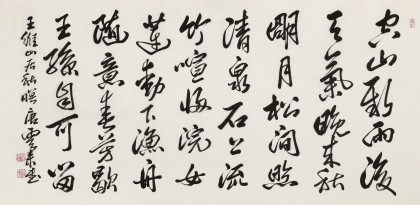 空山新雨後
天氣晚來秋
明月松間照
清泉石上流
竹喧歸浣女
蓮動下漁舟
隨意春芳歇
王孫自可留
王維山居秋暝唐雲來書